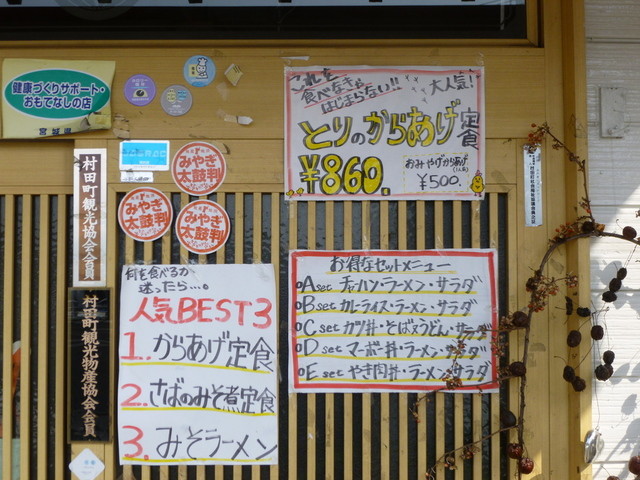 健康づくりサポート・
おもてなしの店
宮城県
これを
食べなきゃ
はじまらない!!
大人気!
とりのからあげ定食
¥860.
おみやげからあげ
¥500.
みやぎ
太鼓判
みやぎ
太鼓判
みやぎ
太鼓判
村田町観光協会会員
村田町観光物産協会会員
何を食べるか
迷ったら…。
人気BEST3
1.からあげ定食
2.さばのみそ煮定食
3.みそラーメン
お得なセットメニュー
○Aset チャーハン・ラーメン・サラダ
○Bset カレーライス・ラーメン・サラダ
○Cset カツ丼・そば又うどん・サラダ
○Dset マーボー丼・ラーメン・サラダ
○Eset やき肉丼・ラーメン・サラダ